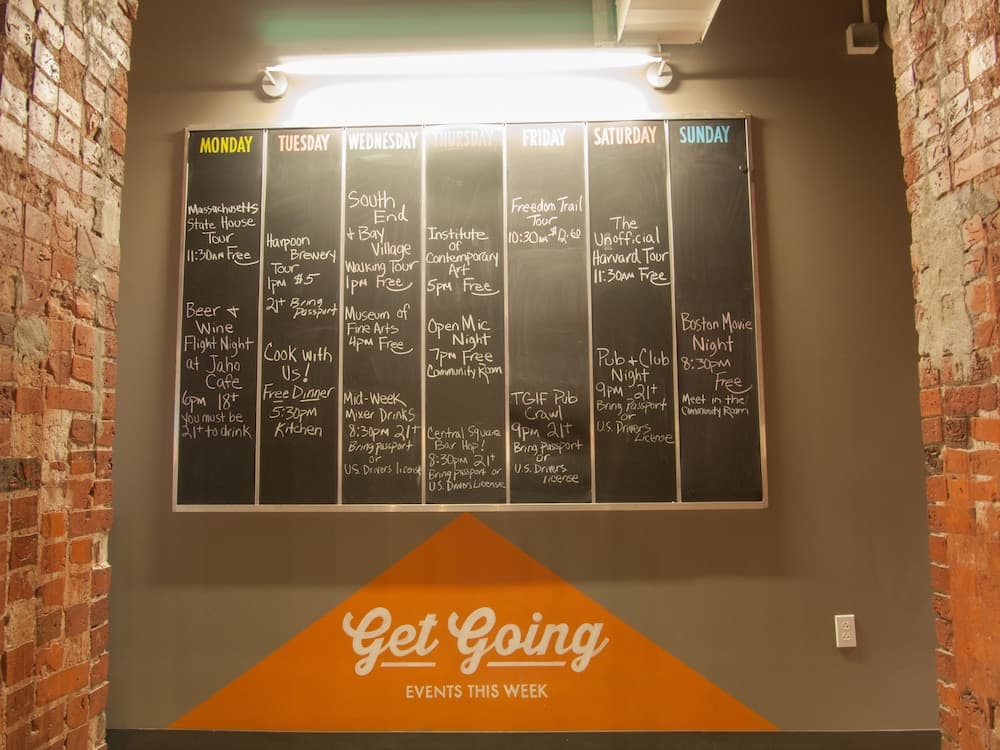 MONDAY
Massachusetts
State House
Tour
11:30am Free
Beer +
Wine
Flight Night
at Jaho
Cafe
6pm 18+
you must be
21+ to drink
TUESDAY
Harpoon
Brewery
Tour
1pm $5
21+ Bring
Passport
Cook with
Us!
Free Dinner
5:30pm
Kitchen
WEDNESDAY
South
End
+ Bay
Village
Walking Tour
1pm Free
Museum of
Fine Arts
4pm Free
Mid-Week
Mixer Drinks
8:30pm 21+
Bring passport
or
U.S. Drivers license
THURSDAY
Institute
of
Contemporary
Art
5pm Free
Open Mic
Night
7pm Free
Community Room
Central Square
Bar Hop!
8:30pm 21+
Bring passport or
U.S. Drivers License
FRIDAY
Freedom Trail
Tour
10:30am $12.60
TGIF Pub
Crawl
9pm 21+
Bring Passport
or
U.S. Drivers
license
SATURDAY
The
Unofficial
Harvard Tour
11:30am Free
Pub + Club
Night
9pm 21+
Bring Passport
or
U.S. Drivers
License
SUNDAY
Boston Movie
Night
8:30pm
Free
Meet in the
Community Room
Get Going
EVENTS THIS WEEK